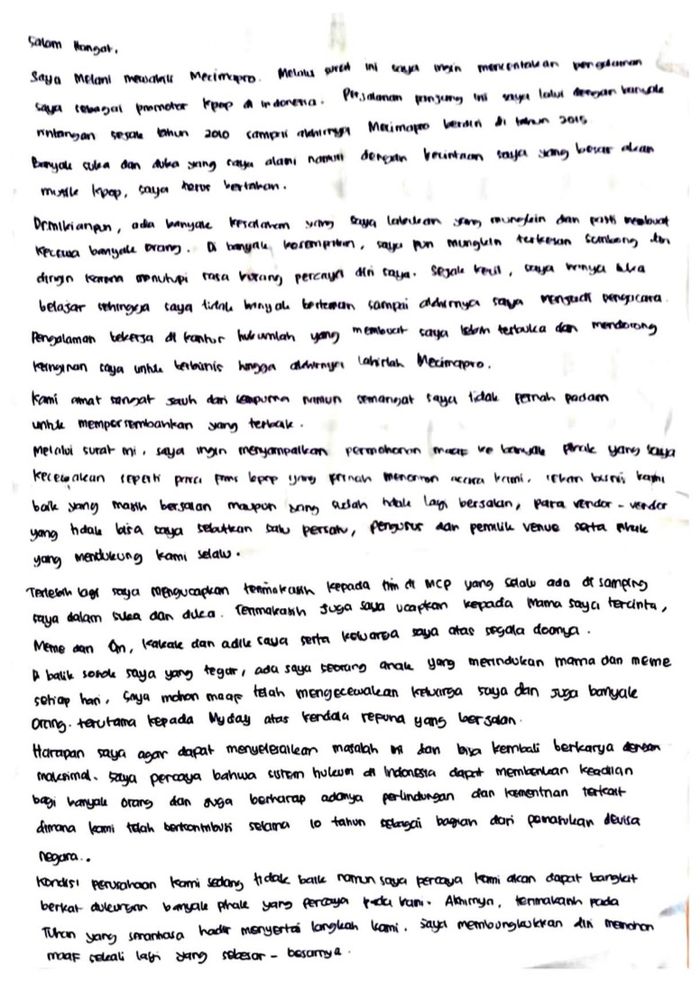 Salam Hangat,
Saya Melani mewakili Mecimapro. Melalui surat ini saya ingin menceritakan pengalaman
saya sebagai promotor kpop di Indonesia. Perjalanan panjang ini saya lalui dengan banyak
rintangan sejak tahun 2010 sampai akhirnya Mecimapro berdiri di tahun 2015
Banyak suka dan duka yang saya alami namun dengan kecintaan saya yang besar akan
musik kpop, saya terus bertahan.
Demikianpun, ada banyak kesalahan yang saya lakukan yang mungkin dan pasti membuat
kecewa banyak orang. Di banyak kesempatan, saya pun mungkin terkesan sombong dan
dingin karena menutupi rasa kurang percaya diri saya. Sejak kecil, saya hanya suka
belajar sehingga saya tidak banyak berteman sampai akhirnya saya menjadi pengacara.
Pengalaman bekerja di kantor hukumlah yang membuat saya lebih terbuka dan mendorong
keinginan saya untuk berbisnis hingga akhirnya lahirlah Mecimapro.
Kami amat sangat jauh dari sempurna namun semangat saya tidak pernah padam
untuk mempersembahkan yang terbaik.
Melalui surat ini, saya ingin menyampaikan permohonan maaf ke banyak pihak yang saya
kecewakan seperti para fans kpop yang pernah menonton acara kami, rekan bisnis kami
baik yang masih berjalan maupun yang sudah tidak lagi berjalan, para vendor - vendor
yang tidak bisa saya sebutkan satu persatu, pengurus dan pemilik venue serta pihak
yang mendukung kami selalu.
Terlebih lagi saya mengucapkan terimakasih kepada tim di MCP yang selalu ada di samping
saya dalam suka dan duka. Terimakasih juga saya ucapkan kepada Mama saya tercinta,
Meme dan On, kakak dan adik saya serta keluarga saya atas segala doanya.
Di balik sosok saya yang tegar, ada saya seorang anak yang merindukan mama dan meme
setiap hari. Saya mohon maaf telah mengecewakan keluarga saya dan juga banyak
orang. terutama kepada Myday atas kendala refund yang berjalan.
Harapan saya agar dapat menyelesaikan masalah ini dan bisa kembali berkarya dengan
maksimal. Saya percaya bahwa sistem hukum di Indonesia dapat memberikan keadilan
bagi banyak orang dan juga berharap adanya perlindungan dari kementrian terkait
dimana kami telah berkontribusi selama 10 tahun sebagai bagian dari pemasukan devisa
negara..
Kondisi perusahaan kami sedang tidak baik namun saya percaya kami akan dapat bangkit
berkat dukungan banyak pihak yang percaya pada kami. Akhirnya, terimakasih pada
Tuhan yang senantiasa hadir menyertai langkah kami. Saya membungkukkan diri memohon
maaf sekali lagi yang sebesar - besarnya.